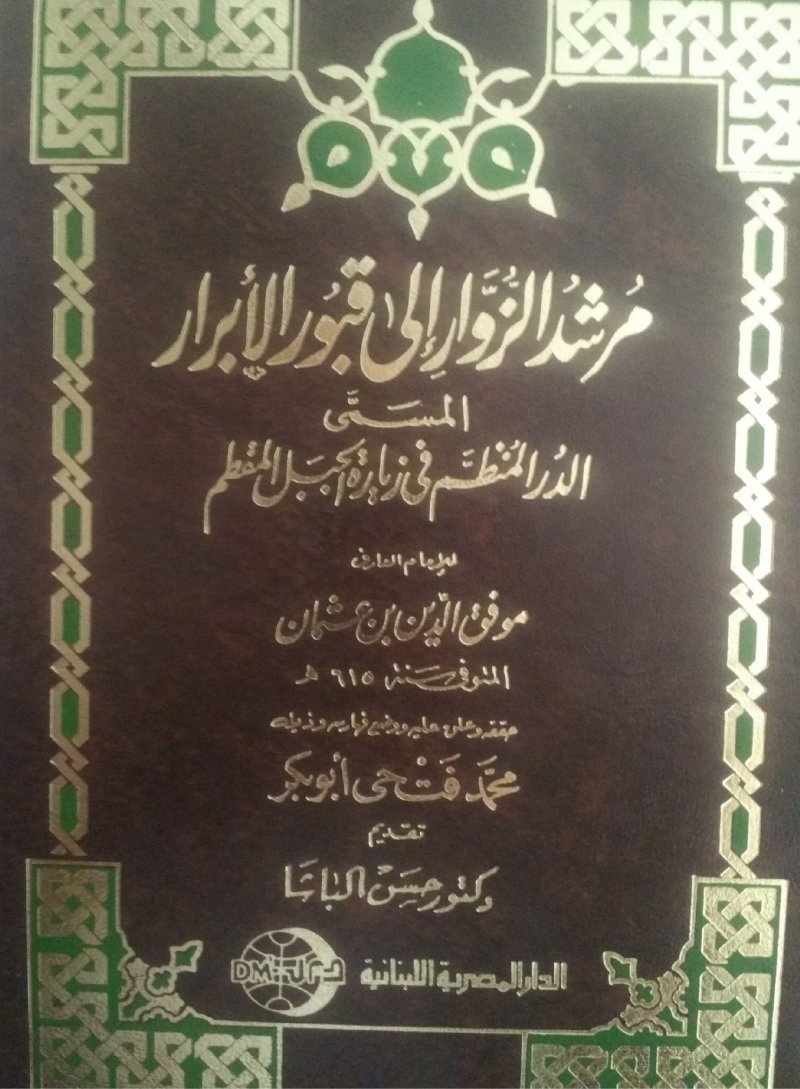 مُرشدُ الزُّوَّارِ إلى قبُورِ الأبرار
المسَمَّى
الدر المُنظَّم فى زيارة الجبَل المقطم
للإمام العارف
موفق الدِّين بن عثمان
المتوفى سَنة ٦١٥ هـ
حققه وعلق عليه ووضع فهارسه وذيله
محمَّد فَتْحى أبوبكر
تقديم
دكتور حسَن الباشا
الدار المصرية اللبنانية